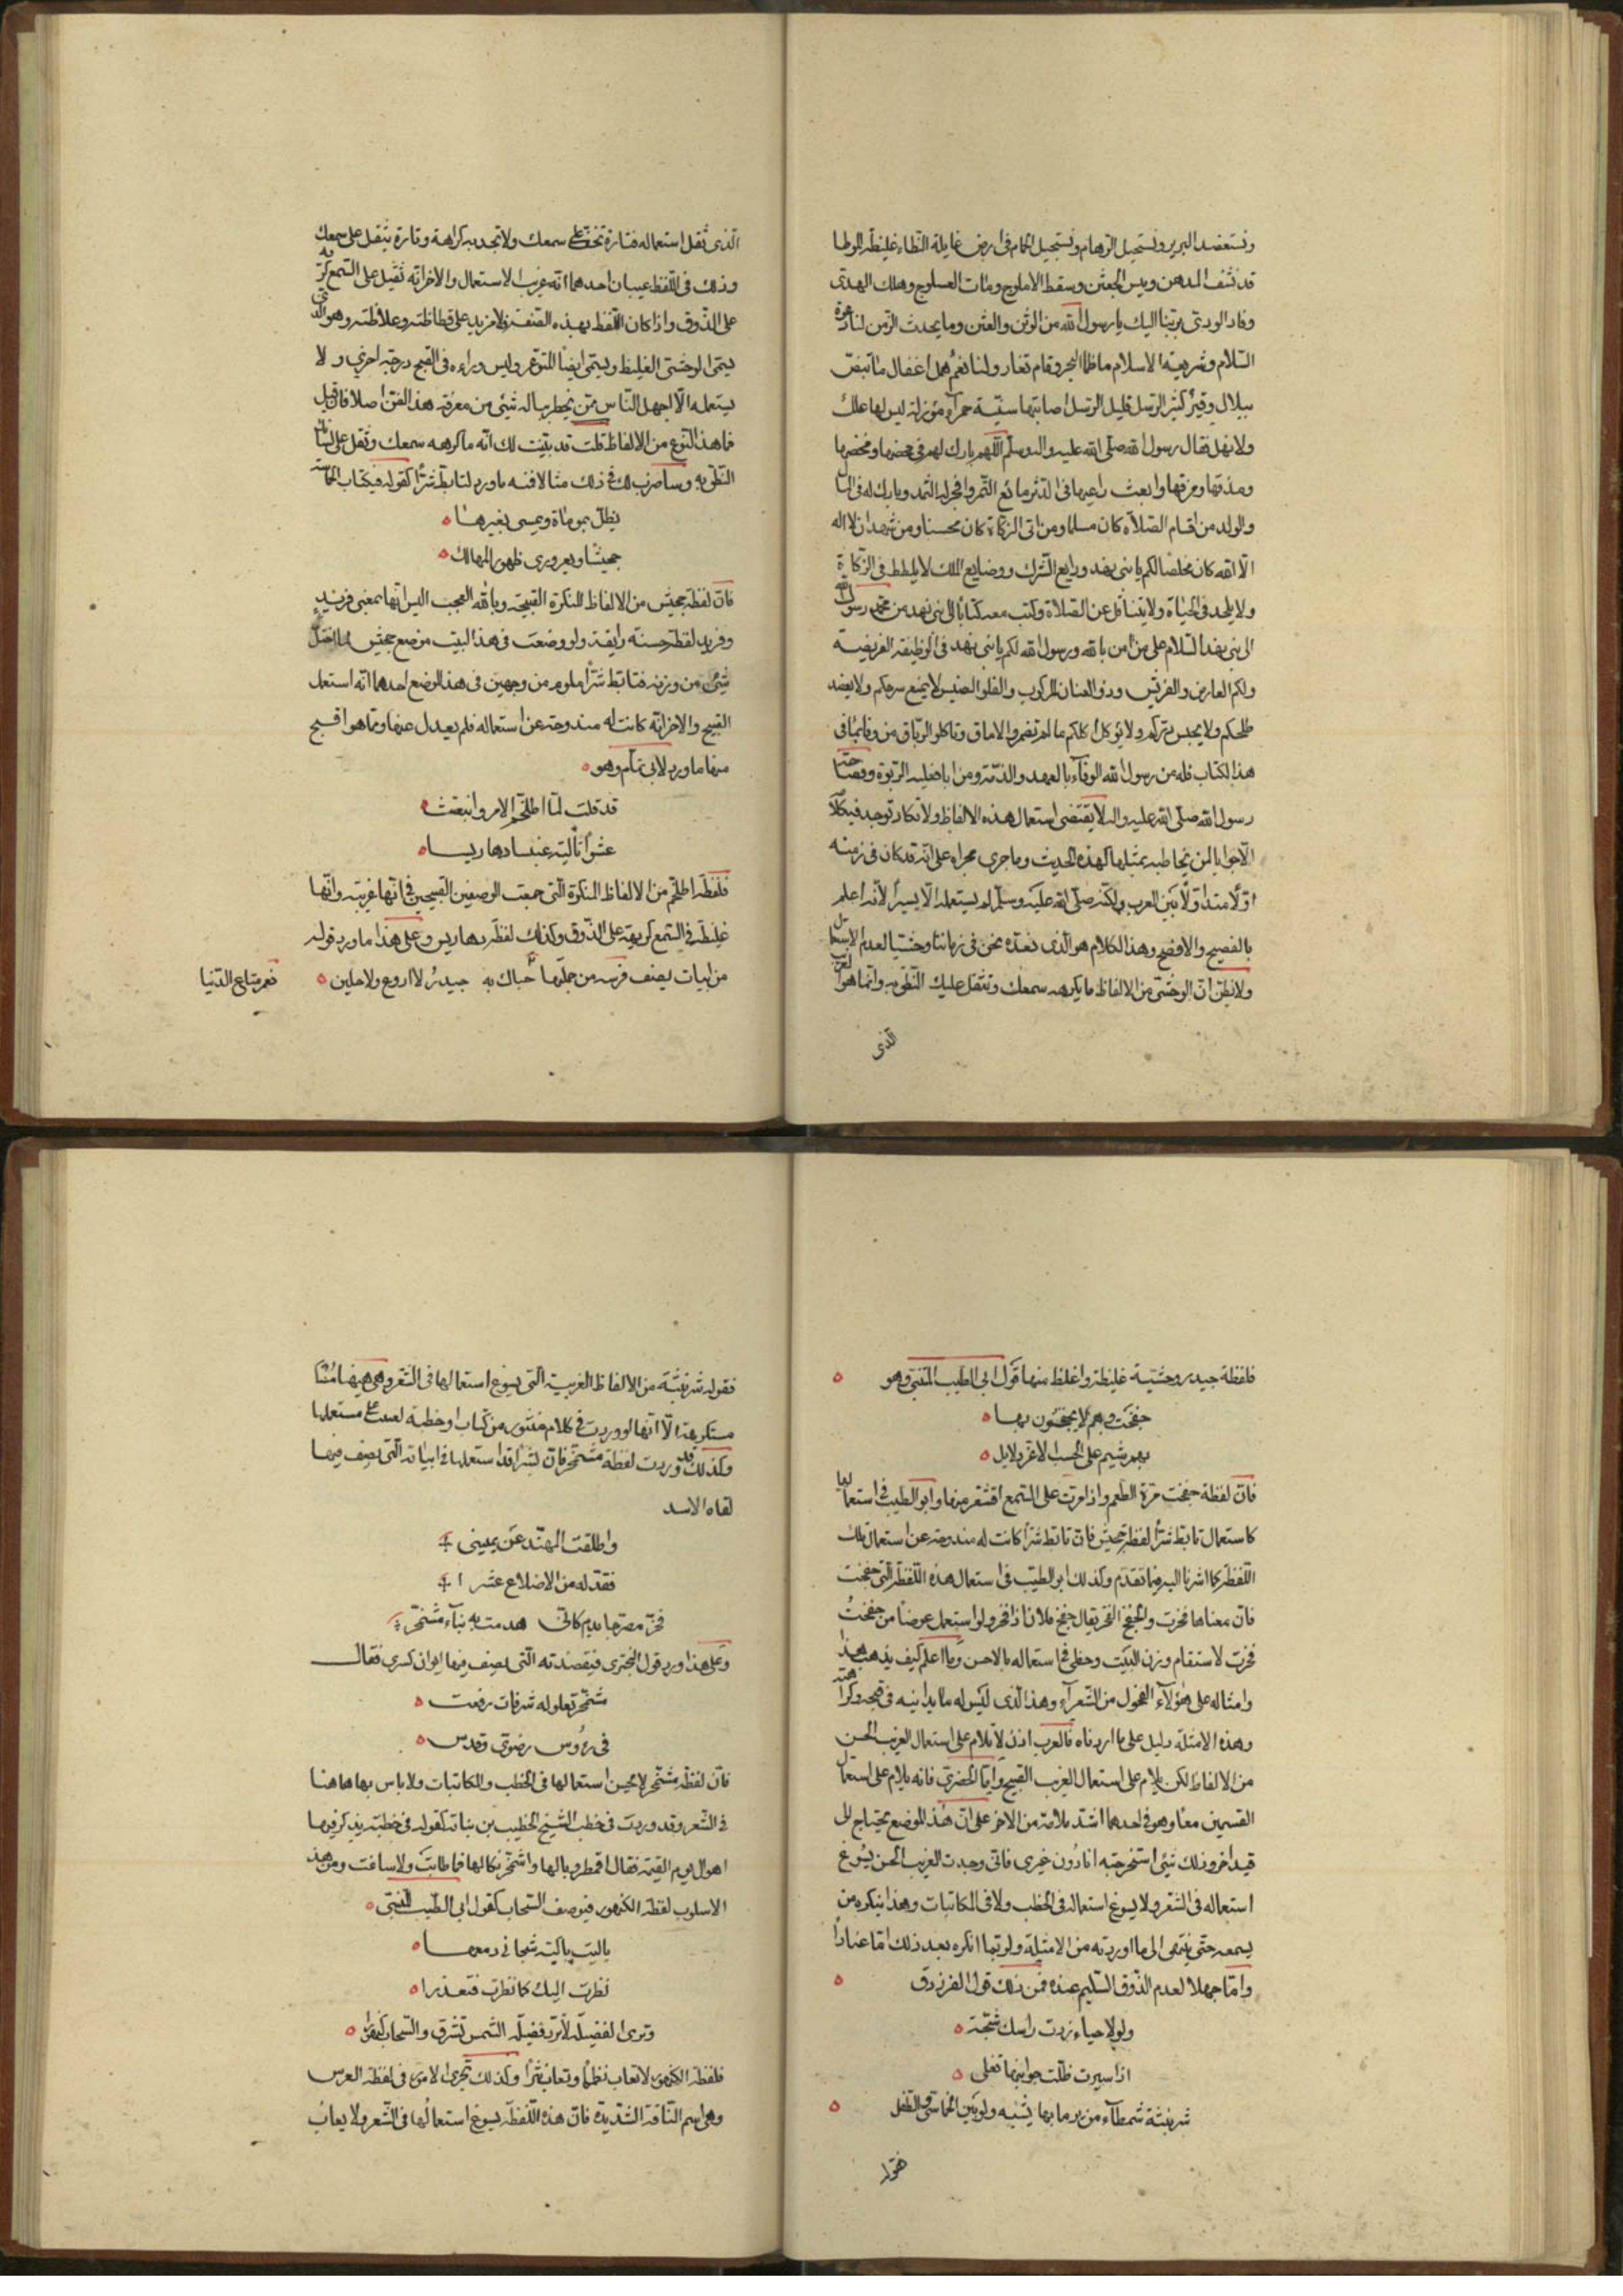 ونستعضد البرير ونستحيل الرهام ونستجيل الجهام في ارض غايلة النطاء غليظة الوطا
قد نشف المدهن ويبس الجعثن وسقط الاملوج ومات العسلوج وهلك الهدى
وفاد الودى برئنا اليك يا رسول الله من الوثن والعثن وما يحدث الزمن لنا دعوة
السلام وشريعة الاسلام ما طما البحر وقام تعار ولنا نعم همل اغفال ما تبض
ببلال ووقير كثير الرسل قليل الرسل اصابتها سنية حمرآء مؤزلة ليس لها علل
ولا نهل فقال رسول الله صلى الله عليه واله وسلم اللهم بارك لهم في محضها ومخضها
ومذقها وفرقها وابعث راعيها في الدثر مانع الثمر وافجر له الثمد وبارك له في المال
والولد من اقام الصلاة كان مسلما ومن اتى الزكاة كان محسنا ومن شهد ان لا اله
الا الله كان مخلصا لكم يا بنى نهد ودايع الشرك ووضايع الملك لا يلطط في الزكاة
ولا يلحد في الحياة ولا يتثاقل عن الصلاة وكتب معه كتابا الى بنى نهد من محمد رسول الله
الى بنى نهد السلام على من امن بالله ورسول الله لكم يا بنى نهد في الوظيفة الفريضة
ولكم العارض والفريش وذو العنان الركوب والفلو الضبيس لا يمنع سرحكم ولا يعضد
طلحكم ولا يحبس دركم ولا يؤكل اكلكم ما لم تضمروا الاماق وتاكلوا الرباق من وفا بما في
هذا الكتاب فله من رسول الله الوفآء بالعهد والذمة ومن ابا فعليه الربوة وفصاحة
رسول الله صلى الله عليه واله لا يقتضى استعمال هذه الالفاظ ولا تكاد توجد في كلامه
الا جوابا لمن يخاطبه بمثلها كهذه الحديث وما جرى مجراه على انه قد كان في زمنه
اولا متداولا بين العرب ولكنه صلى الله عليه وسلم لم يستعمله الا يسيرا لانه اعلم
بالفصيح والافصح وهذا الكلام هو الذى نعده نحن في زماننا وحشيا لعدم الاستعمال
ولا تظن ان الوحشى من الالفاظ ما يكرهه سمعك وتثقل عليك النطق به وانما هو الغريب
الذى
الذى ثقل استعماله فتارة تخف على سمعك ولا تجد به كراهة وتارة يثقل على سمعك
وذلك في اللفظ عيبان احدهما انه غريب الاستعمال والاخر انه ثقيل على السمع كريه
على الذوق واذا كان اللفظ بهذه الصفة فلا مزيد على فظاظته وغلاظته وهو الذى
يسمى الوحشى الغليظ ويسمى ايضا المتوعر وليس وراءه في القبح درجة اخرى ولا
يستعمله الا اجهل الناس ممن يخطر بباله شيئ من معرفة هذا الفن اصلا فان قيل
فما هذا النوع من الالفاظ قلت قد بينت لك انه ما كرهه سمعك وثقل على لسانك
النطق به وساضرب لك في ذلك مثالا فنه ما ورد لتابط شرا كقوله في كتاب الحماسة
يظل بموماة ويمسى بغيرها
جحيشا ويعرورى ظهور المهالك
فان لفظة جحيش من الالفاظ المنكرة القبيحة ويا لله العجب اليس انها بمعنى فريد
وفريد لفظة حسنة رايقة ولو وضعت في هذا البيت موضع جحيش لما اختل
شئ من وزنه فتابط شرا ملوم من وجهين في هذا الموضع احدهما انه استعمل
القبيح والاخر انه كانت له مندوحة عن استعماله فلم يعدل عنها ومما هو اقبح
منها ما ورد لابى تمام وهو
قد قلت لما اطلخم الامر وانبعثت
عشوآ تالية غبسا دهاريسا
فلفظة اطلخم من الالفاظ المنكرة التى جمعت الوصفين القبيحين في انها غريبة وانها
غليظة في السمع كريهة على الذوق وكذلك لفظة دهاريس وعلى هذا ما ورد قوله
من ابيات يصف فرسه من جملتها
نعم متاع الدنيا حباك به جيدر لا اروع ولا جلين
فلفظة جيدر وحشية غليظة واغلظ منها قول ابى الطيب المتنبى وهو
جفخت وهم لا يجفخون بها
بهم شيم على الحسب الاغر دلايل
فان لفظة جفخت مرة الطعم واذا مرت على السمع اقشعر منها وابو الطيب في استعمالها
كاستعمال تابط شرا لفظة جحيش فان تابط شرا كانت له مندوحة عن استعمال تلك
اللفظة كما اشرنا اليه فيما تقدم وكذلك ابو الطيب في استعمال هذه اللفظة التى جفخت
فان معناها فخرت والجفخ الفخر يقال جفخ فلان اذا فخر ولو استعمل عوضا من جفخت
فخرت لاستقام وزن البيت وحظى في استعماله بالاحسن وما اعلم كيف يذهب هذا
وامثاله على هؤلآء الفحول من الشعرآء وهذا الذى ليس له ما يدانيه في قبحه وكراهته
وهذه الامثلة دليل على ما اردناه فالعرب اذن لا تلام على استعمال الغريب الحسن
من الالفاظ لكن يلام على استعمال الغريب القبيح واما الحضرى فانه يلام على استعمال
القسمين معا وهو في احدهما اشد ملامة من الاخر على ان هذا الموضع يحتاج الى
قيد اخر وذلك شئ استخرجته انا دون غيرى فانى وجدت الغريب الحسن يسوغ
استعماله في الشعر ولا يسوغ استعماله في الخطب ولا في المكاتبات وهذا ينكره من
يسمعه حتى ينتهى الى ما اوردته من الامثلة ولربما انكره بعد ذلك اما عنادا
واما جهلا لعدم الذوق السليم عنده فمن ذلك قول الفرزدق
ولولا حياء زدت راسك شجة
اذا سبرت ظلت جوانبها تغلى
شرنبثة شمطآء من ير ما بها يشبه ولو بين الخماسى والطفل
فقوله
فقوله شرنبثة من الالفاظ الغريبة التى يسوغ استعمالها في الشعر وهى هيهنا
مستكرهة الا انها لو وردت في كلام منثور من كتاب او خطبة لعيبت على مستعملها
وكذلك قد وردت لفظة مشمخر فان بشرا قد استعملها في ابياته التى يصف فيها
لقاه الاسد
واطلقت المهند عن يمينى
فقد له من الاضلاع عشرا
فخر مضرجا بدم كانى هدمت به بنآء مشمخرا
وعلى هذا ورد قول البحترى في قصيدته التى يصف فيها ايوان كسرى فقال
مشمخر تعلو له شرفات رفعت
في رؤس رضوى وقدس
فان لفظة مشمخر لا يحسن استعمالها في الخطب والمكاتبات ولا باس بها هاهنا
في الشعر وقد وردت في خطب الشيخ الخطيب بن نباتة كقوله في خطبة يذكر فيها
اهوال يوم القيمة فقال اقمطر وبالها واشمخر نكالها فما طابت ولا ساغت ومن هذا
الاسلوب لفظة الكنهور في وصف السحاب كقول ابى الطيب المتنبى
ياليت باكية شجانى دمعها
نظرت اليك كما نظرت فتعذرا
وترى الفضيلة لا ترد فضيلة الشمس تشرق والسحاب كنهورا
فلفظة الكنهور لا تعاب نظما وتعاب نثرا وكذلك تجرى الامر في لفظة العرمس
وهى اسم الناقة الشديدة فان هذه اللفظة يسوغ استعمالها في الشعر ولا يعاب